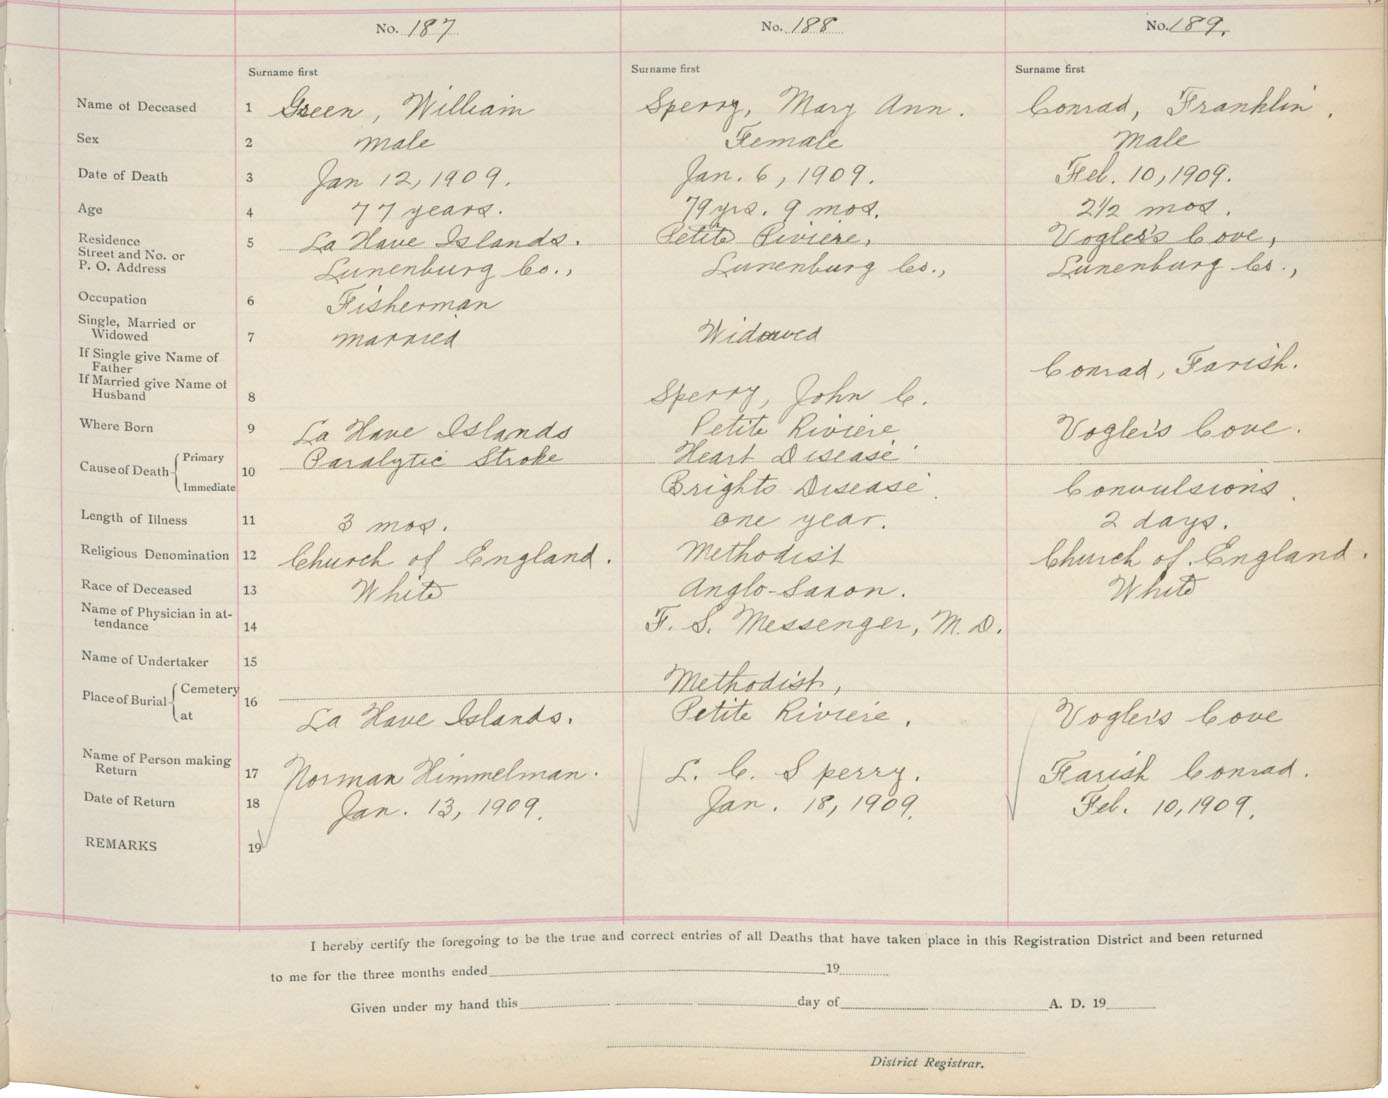 No. 187 No. 188 No. 189.
Surname first Surname first Surname first
Name of Deceased 1 Green, William Sperry, Mary Ann. Conrad, Franklin.
Sex 2 Male Female Male
Date of Death 3 Jan 12, 1909. Jan. 6, 1909. Feb. 10, 1909.
Age 4 77 years. 79 yrs. 9 mos. 2 1/2 mos.
Residence 5 La Have Islands. Petite Riviere, Vogler's Cove,
Street and No. or
P. O. Address Lunenburg Co., Lunenburg Co., Lunenburg Co.,
Occupation 6 Fisherman
Single, Married or
Widowed 7 Married Widowed
If Single give Name of
Father Conrad, Farish.
If Married give Name of
Husband 8 Sperry, John C.
Where Born 9 La Have Islands Petite Riviere Vogler's Cove.
Cause of Death 10 Primary Paralytic Stroke Heart Disease
Immediate Brights Disease. Convulsions.
Length of Illness 11 3 mos. one year. 2 days.
Religious Denomination 12 Church of England. Methodist Church of England.
Race of Deceased 13 White Anglo-Saxon. White
Name of Physician in at-
tendance 14 F. S. Messenger, M. D.
Name of Undertaker 15
Place of Burial 16 Cemetery Methodist,
at La Have Islands. Petite Riviere. Vogler's Cove
Name of Person making
Return 17 Norman Himmelman. L. C. Sperry. Farish Conrad.
Date of Return 18 Jan. 13, 1909. Jan. 18, 1909. Feb. 10, 1909.
REMARKS 19
I hereby certify the foregoing to be the true and correct entries of all Deaths that have taken place in this Registration District and been returned
to me for the three months ended 19
Given under my hand this day of A. D. 19
District Registrar.